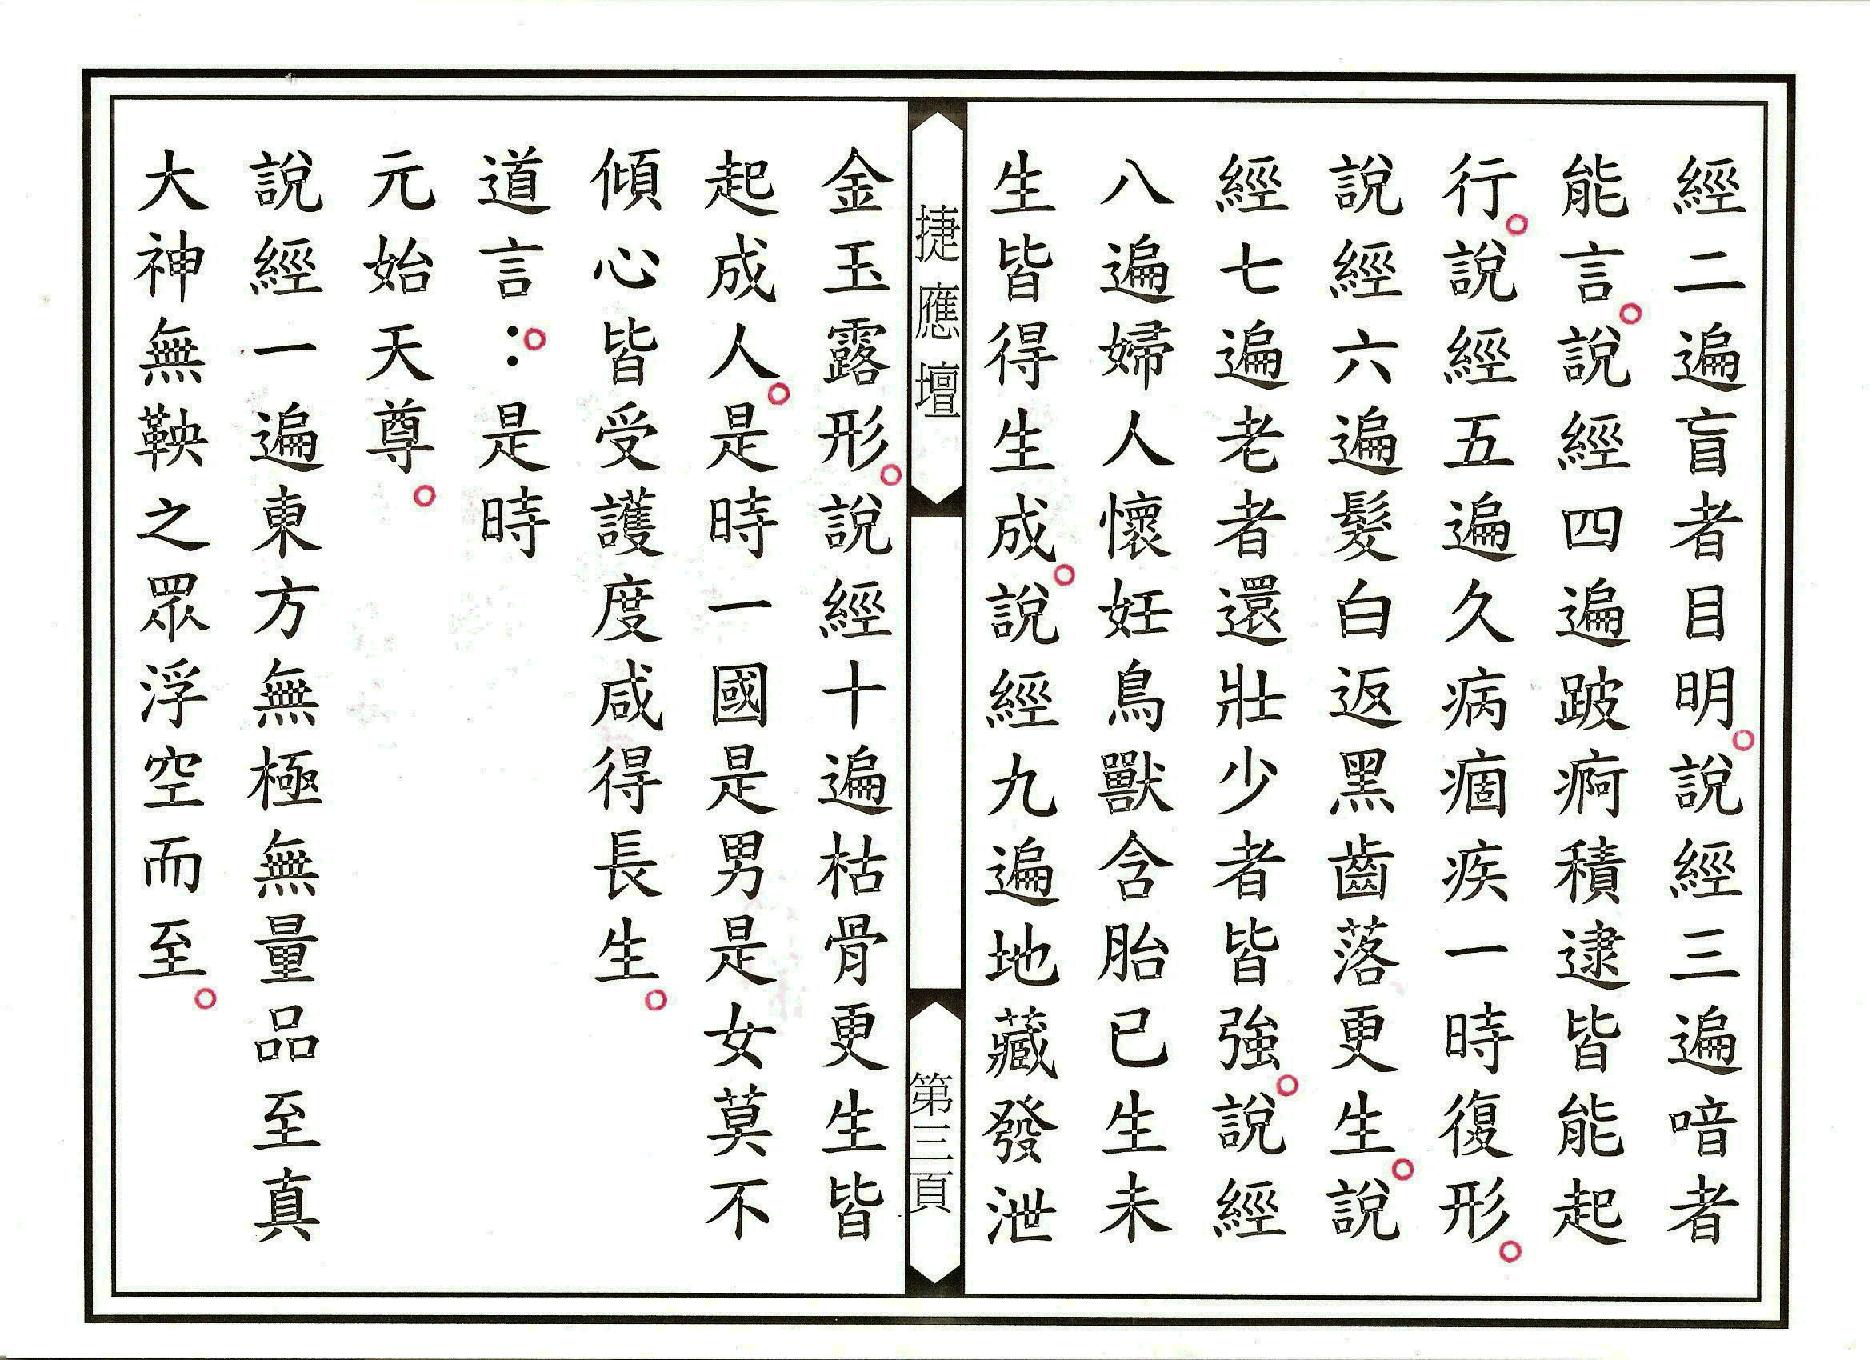 經二遍盲者目明。說經三遍喑者
能言。說經四遍跛痾積逮皆能起
行。說經五遍久病痼疾一時復形。
說經六遍髮白返黑齒落更生。說
經七遍老者還壯少者皆強。說經
八遍婦人懷妊鳥獸含胎已生未
生皆得生成。說經九遍地藏發泄
捷應壇
第三頁
金玉露形。說經十遍枯骨更生皆
起成人。是時一國是男是女莫不
傾心皆受護度咸得長生。
道言：。是時
元始天尊。
說經一遍東方無極無量品至真
大神無鞅之眾浮空而至。